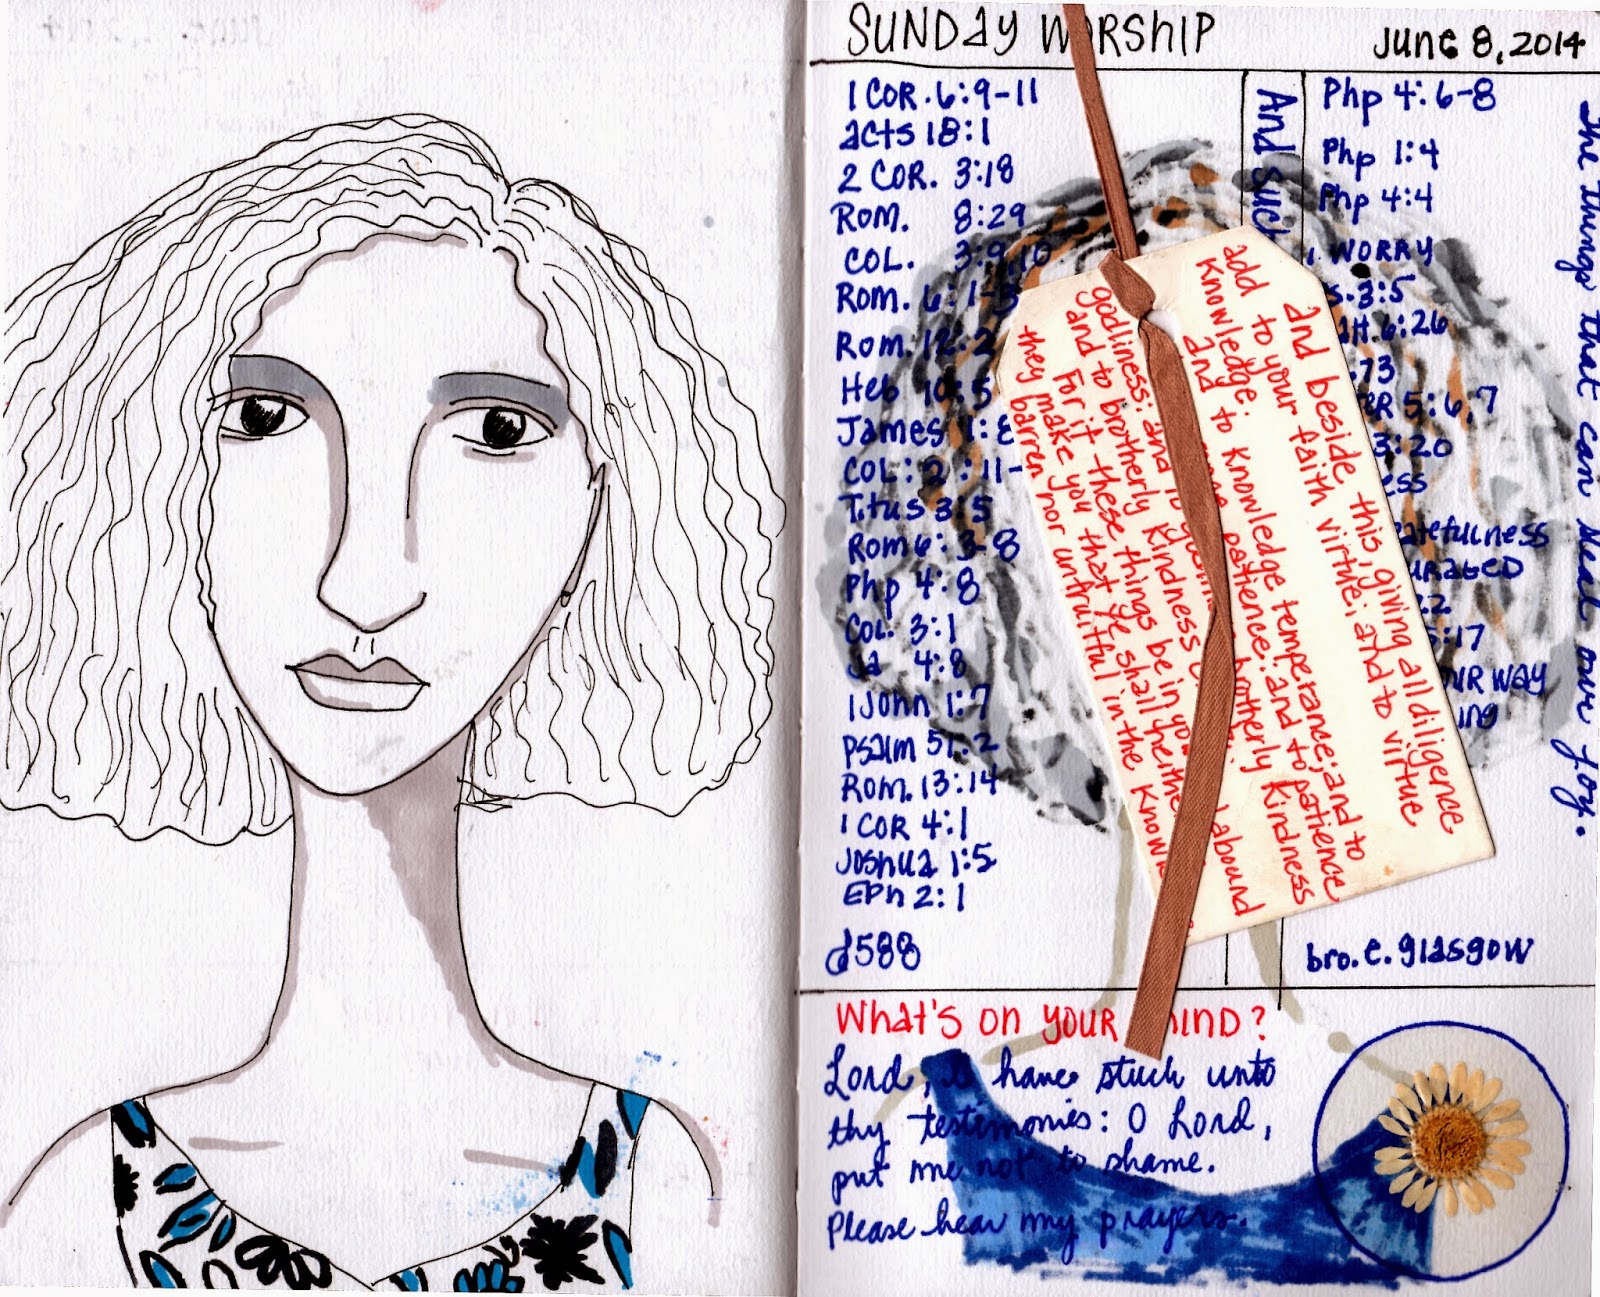 SUNDAY WORSHIP
JUNE 8, 2014
1 COR. 6:9-11
acts 18:1
2 COR. 3:18
ROM. 8:29
COL. 3:9,10
ROM. 6:1-3
ROM. 12:2
Heb 10:5
James 1:8
COL: 2:11-
Titus 3:5
Rom 6:3-8
Php 4:8
COL. 3:1
Ja 4:8
1 John 1:7
Psalm 51:2
ROM. 13:14
1 COR 4:1
Joshua 1:5
EPh 2:1
d588
And such
Php 4:6-8
Php 1:4
Php 4:4
WORRY
.3:5
6:26
73
5:6,7
3:20
ess
atefulness
URAGED
:2
5:17
OUR WAY
ing
bro. e. glasgow
The things that can steal our joy.
and beside this, giving all diligence
add to your faith virtue; and to virtue
Knowledge:
and to knowledge temperance; and to
patience; and to patience
godliness: and to brotherly kindness
and to brotherly kindness
For if these things be in you abound
they make you that ye shall neither
barren nor unfruitful in the know
What's on YOUR MIND?
Lord, I have stuck unto
thy testimonies: O Lord,
put me not to shame.
Please hear my prayers.